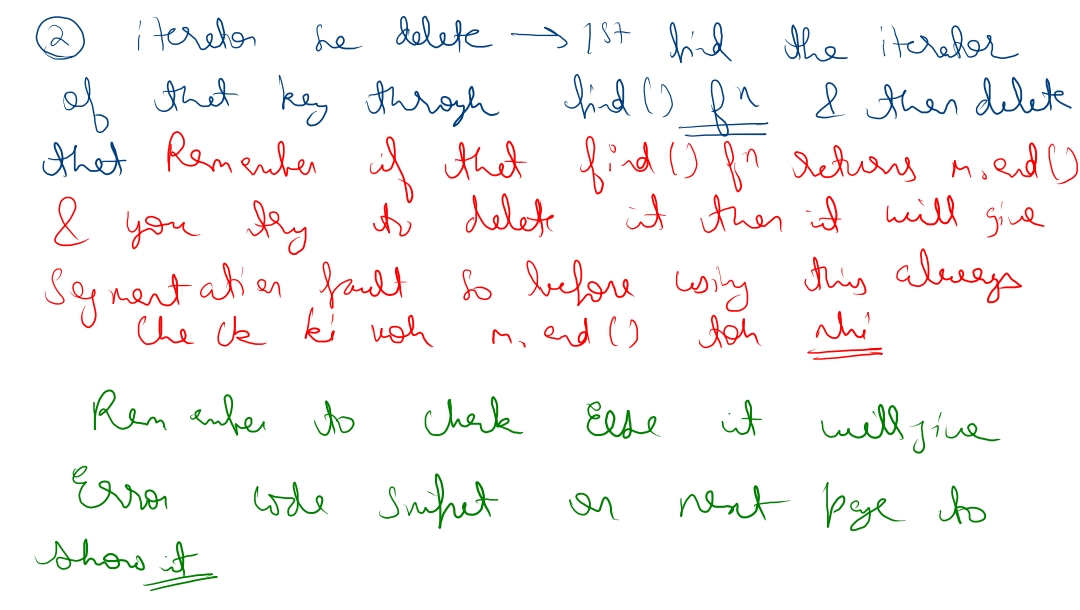 ② iterator se delete → 1st find the iterator
of that key through find() fn & then delete
that Remember if that find() fn returns m.end()
& you try to delete it then it will give
Segmentation fault So before using this always
Check ki voh m.end() toh nhi
Remember to check Else it will give
Error code snipet on next page to
show it